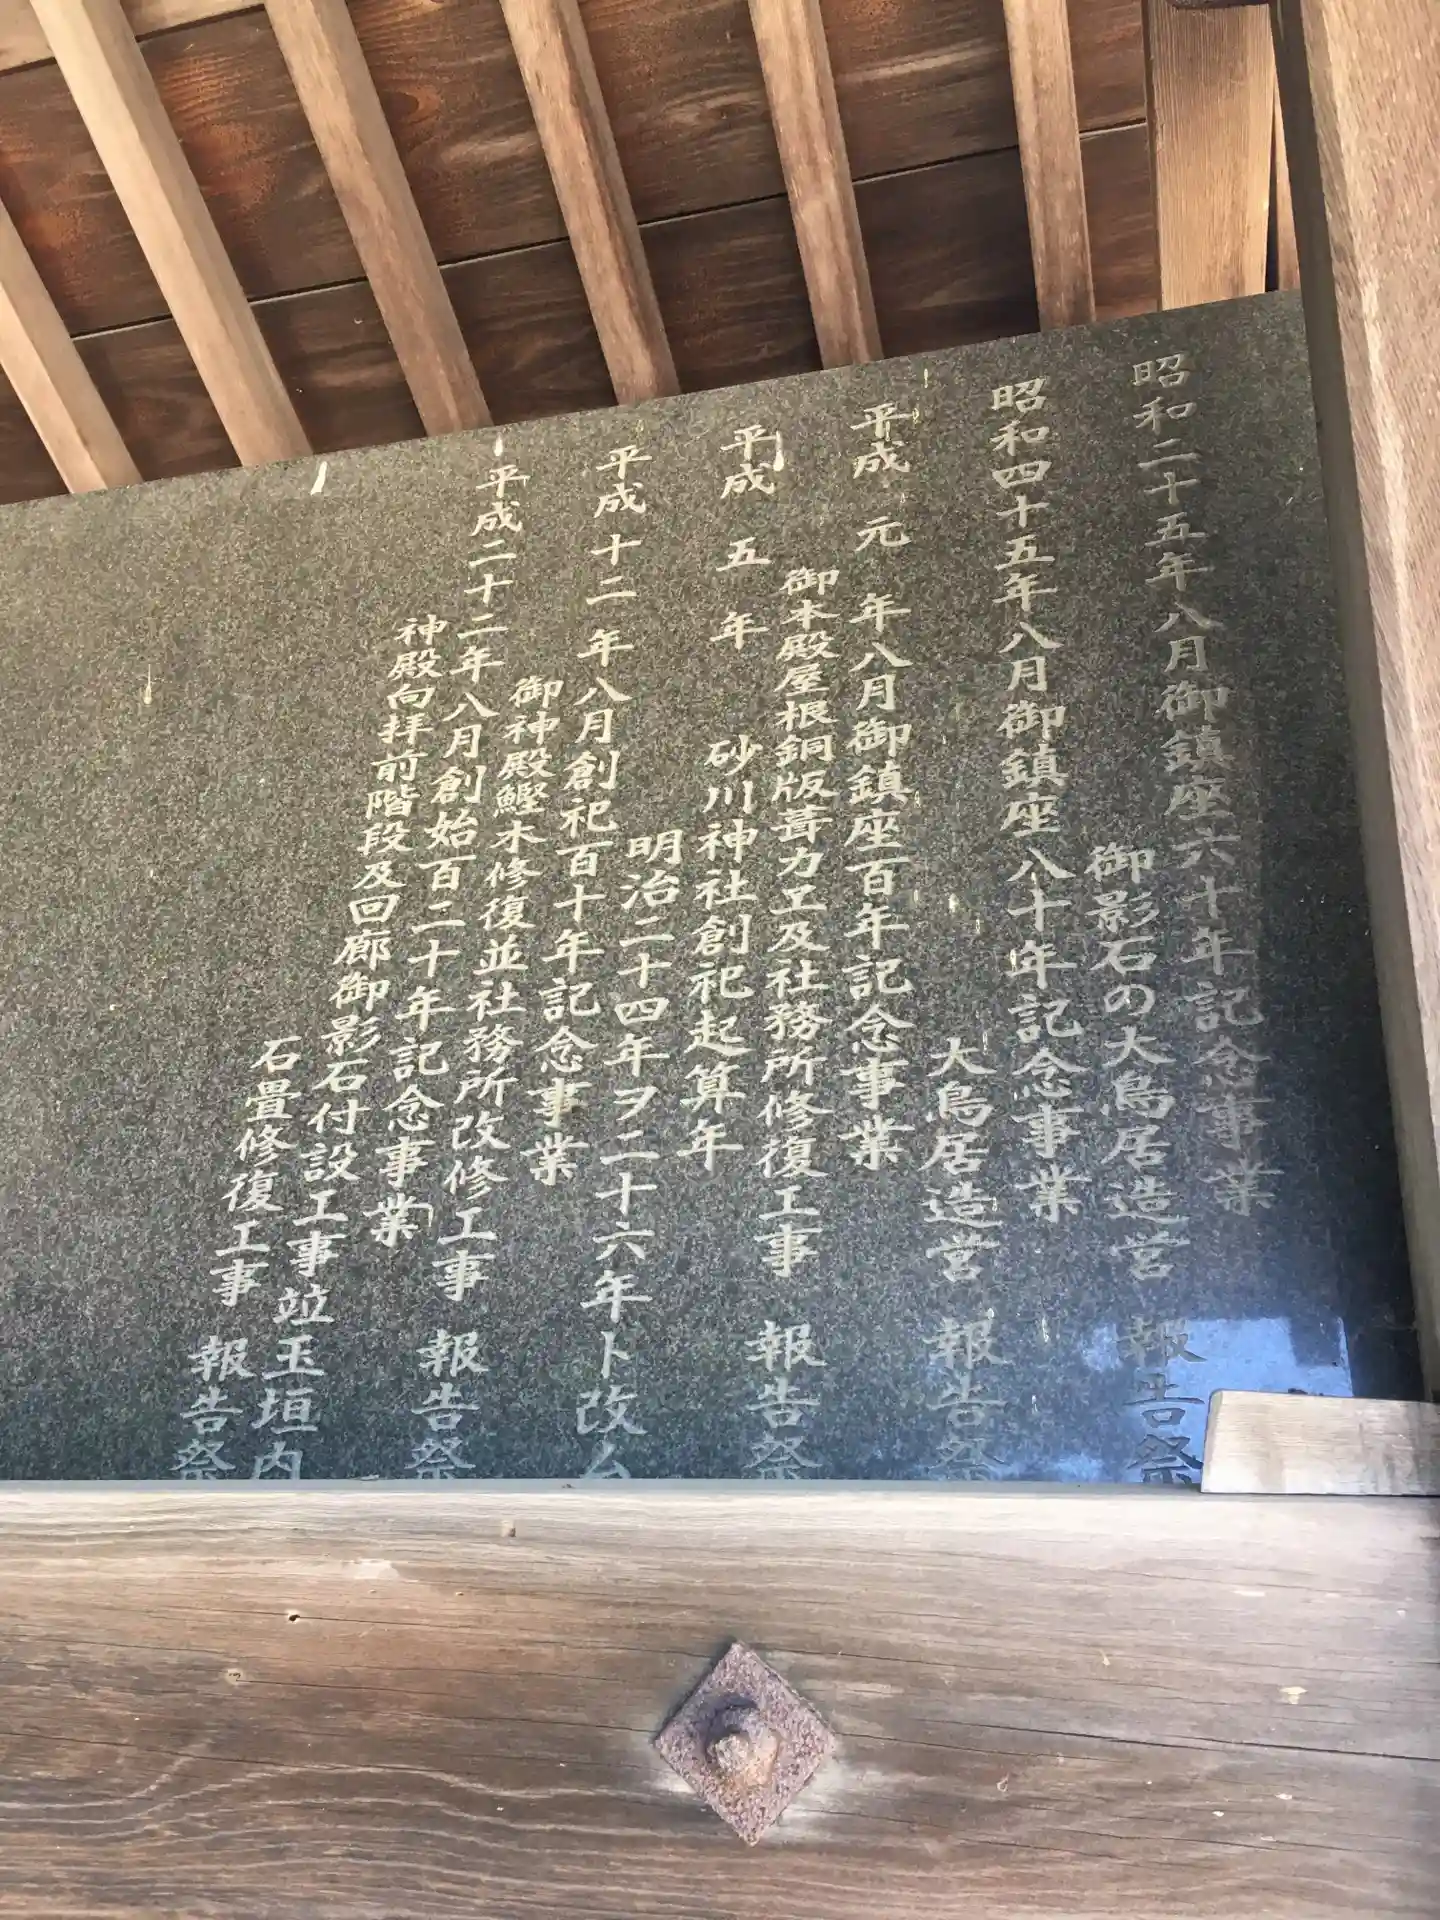 昭和二十五年八月御鎮座六十年記念事業
御影石の大鳥居造営 報告祭
昭和四十五年八月御鎮座八十年記念事業
大鳥居造営 報告祭
平成 元 年八月御鎮座百年記念事業
御本殿屋根銅版葺カエ及社務所修復工事 報告祭
平成 五 年 砂川神社創祀起算年
明治二十四年ヲ二十六年ト改ム
平成 十二 年八月創祀百十年記念事業
御神殿鰹木修復並社務所改修工事 報告祭
平成二十二年八月創始百二十年記念事業
神殿向拝前階段及回廊御影石付設工事竝玉垣内
石畳修復工事 報告祭